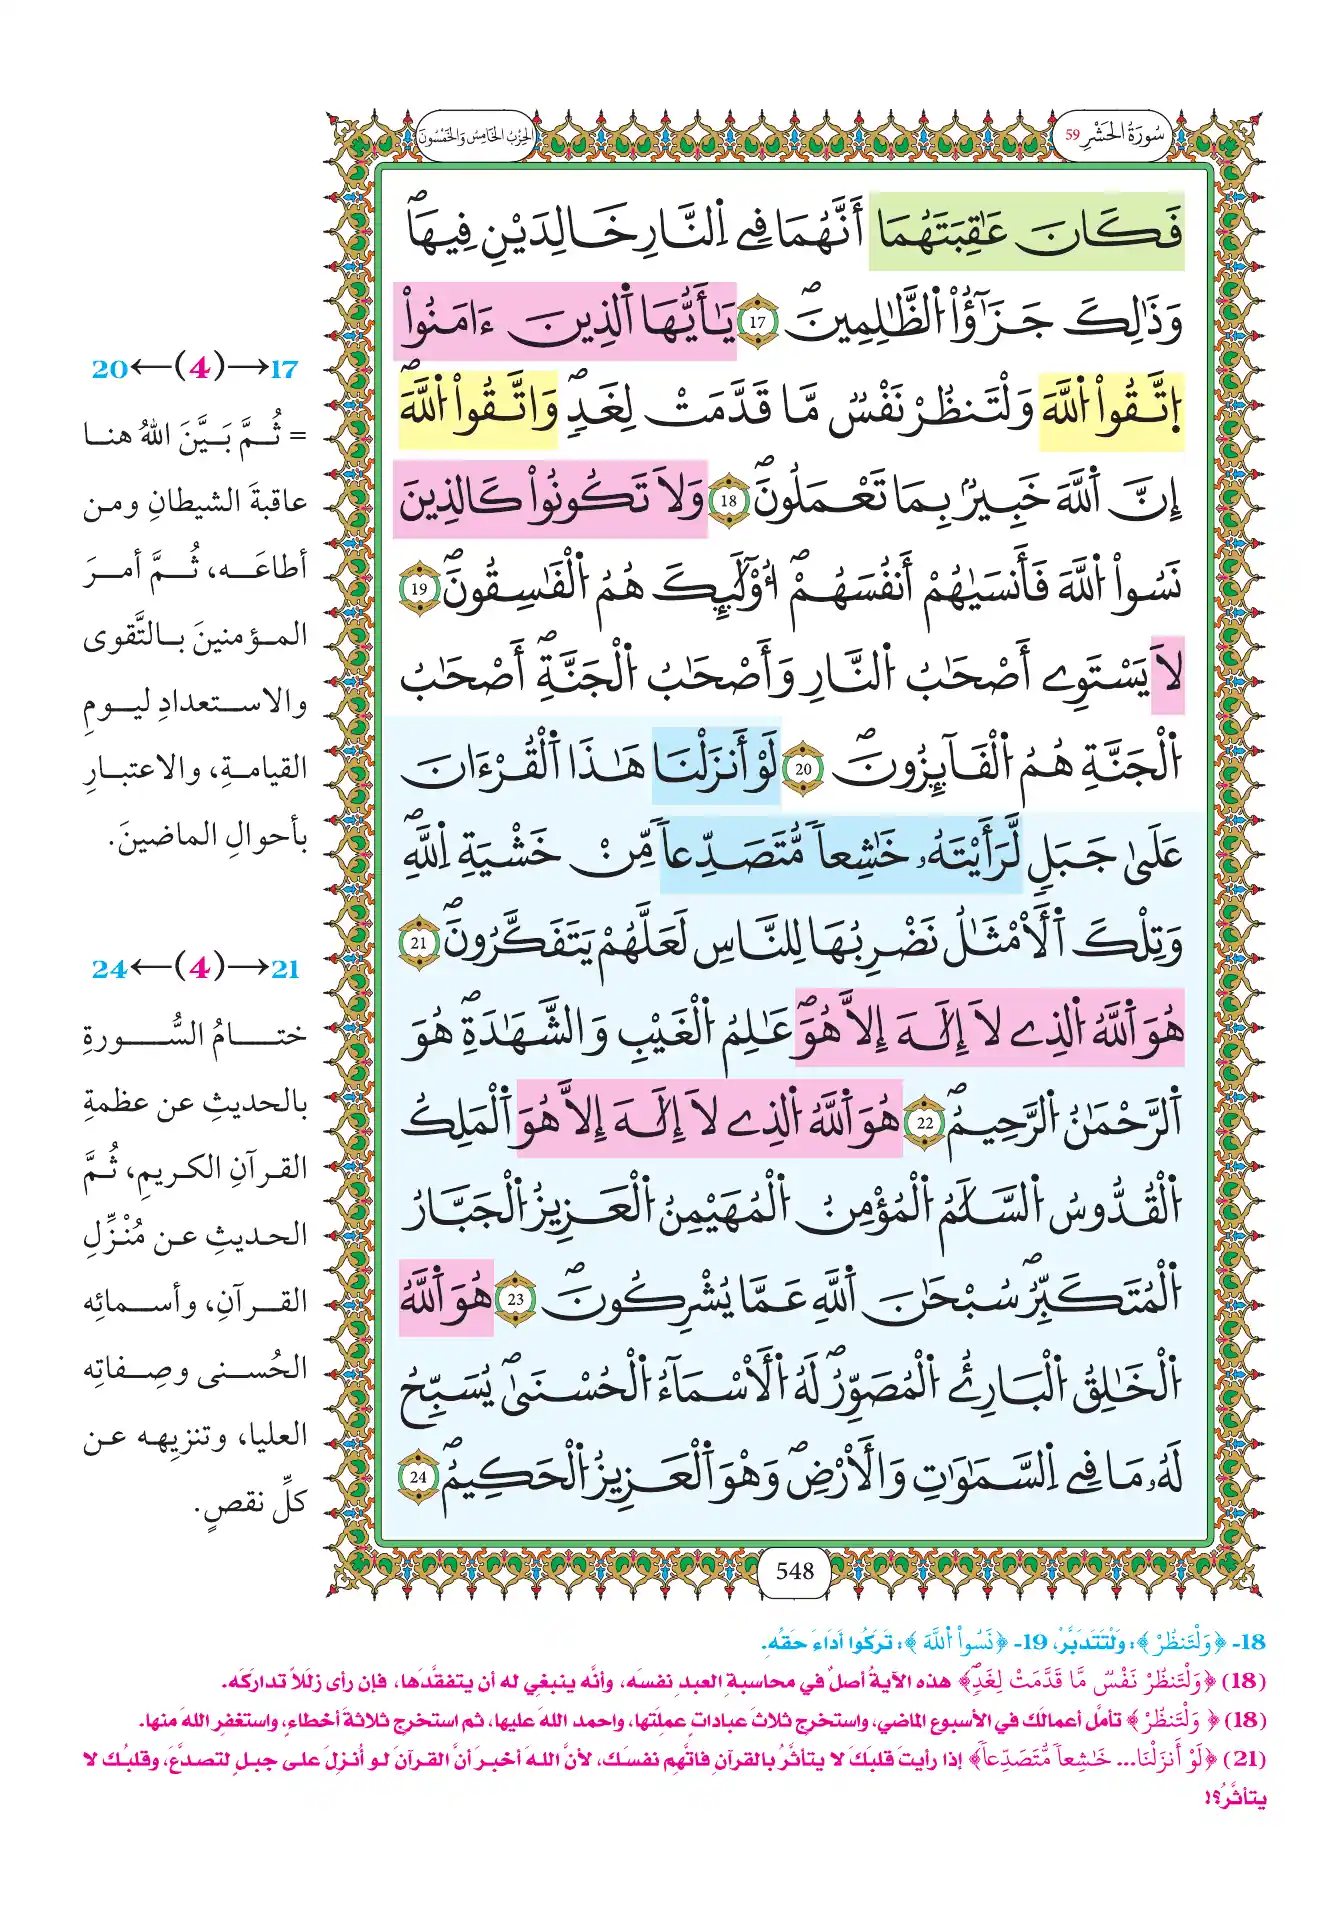 سُورَةُ الحَشْرِ 59
الحِزْبُ الخَامِسُ وَالخَمْسُونَ
فَكَانَ عَٰقِبَتَهُمَا أَنَّهُمَا فِي اِ۬لنَّارِ خَٰلِدَيْنِ فِيهَاۖ
وَذَٰلِكَ جَزَٰٓؤُاْ اُ۬لظَّٰلِمِينَۖ 17 يَٰٓأَيُّهَا اَ۬لذِينَ ءَامَنُواْ
اُ۪تَّقُواْ اُ۬للَّهَ وَلْتَنظُرْ نَفْسٞ مَّا قَدَّمَتْ لِغَدٖۖ وَاتَّقُواْ اُ۬للَّهَۖ
إِنَّ اَ۬للَّهَ خَبِيرُۢ بِمَا تَعْمَلُونَۖ 18 وَلَا تَكُونُواْ كَالذِينَ
نَسُواْ اُ۬للَّهَ فَأَنسَيٰهُمْ أَنفُسَهُمْۖ أُوْلَٰٓئِكَ هُمُ اُ۬لْفَٰسِقُونَۖ 19
لَا يَسْتَوِے أَصْحَٰبُ اُ۬لنَّارِ وَأَصْحَٰبُ اُ۬لْجَنَّةِۖ أَصْحَٰبُ
اُ۬لْجَنَّةِ هُمُ اُ۬لْفَآئِزُونَۖ 20 لَوْ أَنزَلْنَا هَٰذَا اَ۬لْقُرْءَانَ
عَلَىٰ جَبَلٖ لَّرَأَيْتَهُۥ خَٰشِعاٗ مُّتَصَدِّعاٗ مِّنْ خَشْيَةِ اِ۬للَّهِۖ
وَتِلْكَ اَ۬لْأَمْثَٰلُ نَضْرِبُهَا لِلنَّاسِ لَعَلَّهُمْ يَتَفَكَّرُونَۖ 21
هُوَ اَ۬للَّهُ اُ۬لذِے لَا إِلَٰهَ إِلَّا هُوَۖ عَٰلِمُ اُ۬لْغَيْبِ وَالشَّهَٰدَةِۖ هُوَ
اَ۬لرَّحْمَٰنُ اُ۬لرَّحِيمُۖ 22 هُوَ اَ۬للَّهُ اُ۬لذِے لَا إِلَٰهَ إِلَّا هُوَ اَ۬لْمَلِكُ
اُ۬لْقُدُّوسُ اُ۬لسَّلَٰمُ اُ۬لْمُؤْمِنُ اُ۬لْمُهَيْمِنُ اُ۬لْعَزِيزُ اُ۬لْجَبَّارُ
اُ۬لْمُتَكَبِّرُۖ سُبْحَٰنَ اَ۬للَّهِ عَمَّا يُشْرِكُونَۖ 23 هُوَ اَ۬للَّهُ
اُ۬لْخَٰلِقُ اُ۬لْبَارِئُ اُ۬لْمُصَوِّرُۖ لَهُ اُ۬لْأَسْمَآءُ اُ۬لْحُسْنَىٰۖ يُسَبِّحُ
لَهُۥ مَا فِي اِ۬لسَّمَٰوَٰتِ وَالْأَرْضِۖ وَهْوَ اَ۬لْعَزِيزُ اُ۬لْحَكِيمُۖ 24
17→(4)←20
= ثُمَّ بَيَّنَ اللهُ هنا
عاقبةَ الشيطانِ ومن
أطاعَه، ثُمَّ أمرَ
المؤمنينَ بالتَّقوى
والاستعدادِ ليومِ
القيامةِ، والاعتبارِ
بأحوالِ الماضينَ.
21→(4)←24
ختامُ السُّورةِ
بالحديثِ عن عظمةِ
القرآنِ الكريمِ، ثُمَّ
الحديثِ عن مُنْزِّلِ
القرآنِ، وأسمائِه
الحُسنى وصِفاتِه
العليا، وتنزيهِه عن
كلِّ نقصٍ.
548
18- ﴿وَلْتَنظُرْ﴾: وَلْتَتَدَبَّرْ، 19- ﴿نَسُواْ اُ۬للَّهَ﴾: تَرَكُوا أَدَاءَ حَقِّهِ.
(18) ﴿وَلْتَنظُرْ نَفْسٞ مَّا قَدَّمَتْ لِغَدٖۖ﴾ هذه الآيةُ أصلٌ في محاسبةِ العبدِ نفسَه، وأنَّه ينبغي له أن يتفقَّدَها، فإن رأى زللًا تداركَه.
(18) ﴿وَلْتَنظُرْ﴾ تأمل أعمالَك في الأسبوع الماضي، واستخرج ثلاثَ عباداتٍ عملتَها، واحمد اللهَ عليها، ثم استخرج ثلاثةَ أخطاءٍ، واستغفرِ اللهَ منها.
(21) ﴿لَوْ أَنزَلْنَا... خَٰشِعاٗ مُّتَصَدِّعاٗ﴾ إذا رأيتَ قلبَكَ لا يتأثَّرُ بالقرآنِ فاتَّهِم نفسَك، لأنَّ اللهَ أخبرَ أنَّ القرآنَ لو أُنزلَ على جبلٍ لتصدَّعَ، وقلبُك لا
يتأثَّرُ؟!